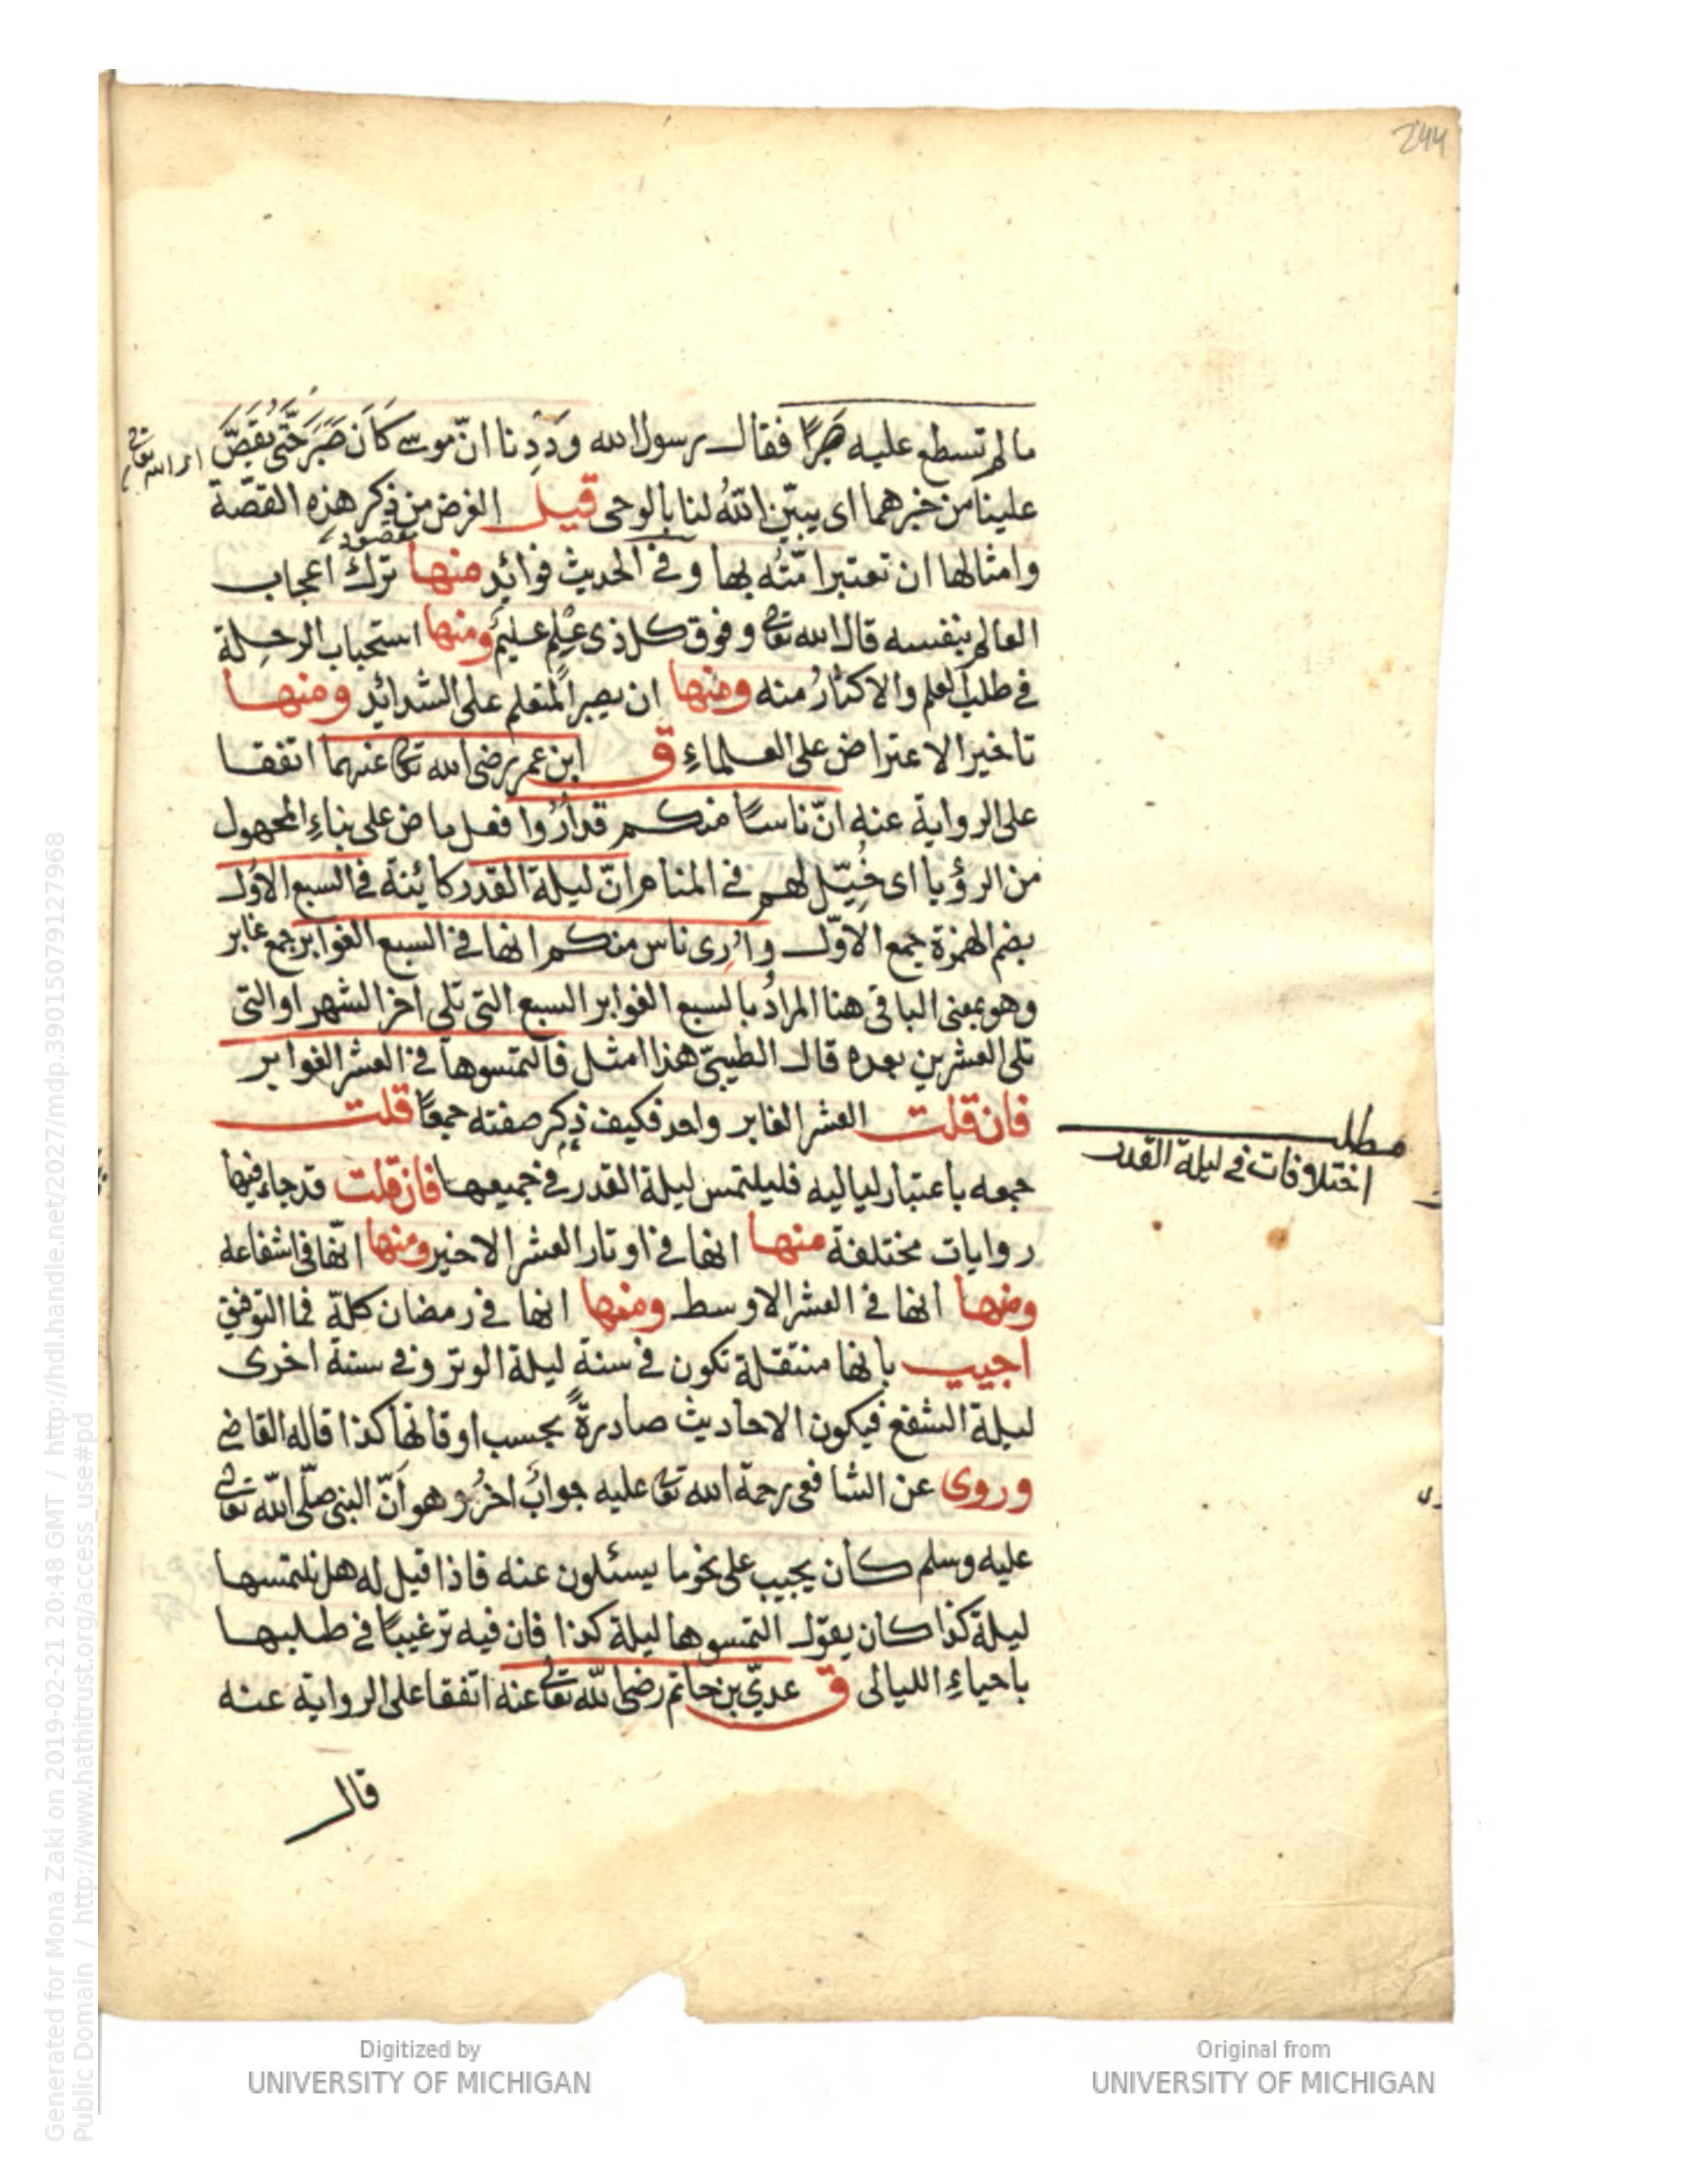 244
ما لم تسطع عليه صبرًا فقال رسول الله وددنا انّ موسى كَانَ صَبَرَ حَتّى يَقُصَّ
علينا من خبرهما اى يبيّن اللهُ لنا بالوحى قيل الغرض من ذِكر هذِه القصّة
مقصود
وامثالها ان تعتبر امّتُه بها وفى الحديث فوائد منها ترك اعجاب
العالم بنفسه قال الله تعالى وفوق كل ذى عِلمٍ عليمٌ ومنها استحباب الرحلة
فى طلب العلم والاكثارُ منه ومنها ان يصبر المتعلم على الشدائد ومنها
تاخير الاعتراض على العلماءِ ق ابن عمر رضى الله تعالى عنهما اتفقا
على الرواية عنه انّ ناسًا منكم قد اُرُوا فعل ماض على بناءِ المجهول
من الرؤيا اى خُيّل لهم فى المنام انّ ليلة القدر كائنة فى السبع الاُوَل
بضم الهمزة جمع الاوّل واُرِى ناس منكم انها فى السبع الغوابر جمع غابر
وهو بمعنى الباقى هنا المرادُ بالسبع الغوابر السبع التى تلى اخر الشهر او التى
تلى العشرين بعده قال الطيبىّ هذا امثل فالتمسوها فى العشر الغوابر
فان قلت العشر الغابر واحد فكيف ذُكِر صفته جمعًا قلت
مطلب
اختلافات فى ليلة القدر
جمعه باعتبار لياليه فليلتمس ليلة القدر فى جميعها فان قلت قد جاء فيها
روايات مختلفة منها انها فى اوتار العشر الاخير ومنها انّها فى اشفاعه
ومنها انها فى العشر الاوسط ومنها انها فى رمضان كلّه فما التوفيق
اجيب بانها منتقلة تكون فى سنة ليلة الوتر وفى سنة اخرى
ليلة الشفع فيكون الاحاديث صادرةً بحسب اوقاتها كذا قاله القاضى
وروى عن الشافعى رحمة الله تعالى عليه جوابٌ اخرُ وهو اَنّ النبى صلّى الله تعالى
عليه وسلم كان يجيب على نحو ما يسئلون عنه فاذا قيل له هل نلتمسها
ليلة كذا كان يقول التمسوها ليلة كذا فان فيه ترغيبًا فى طلبها
باحياءِ الليالى ق عدىّ بن حاتم رضى الله تعالى عنه اتفقا على الرواية عنه
قال
Generated for Mona Zaki on 2019-02-21 20:48 GMT / http://hdl.handle.net/2027/mdp.39015079127968
Public Domain / http://www.hathitrust.org/access_use#pd
Digitized by
UNIVERSITY OF MICHIGAN
Original from
UNIVERSITY OF MICHIGAN